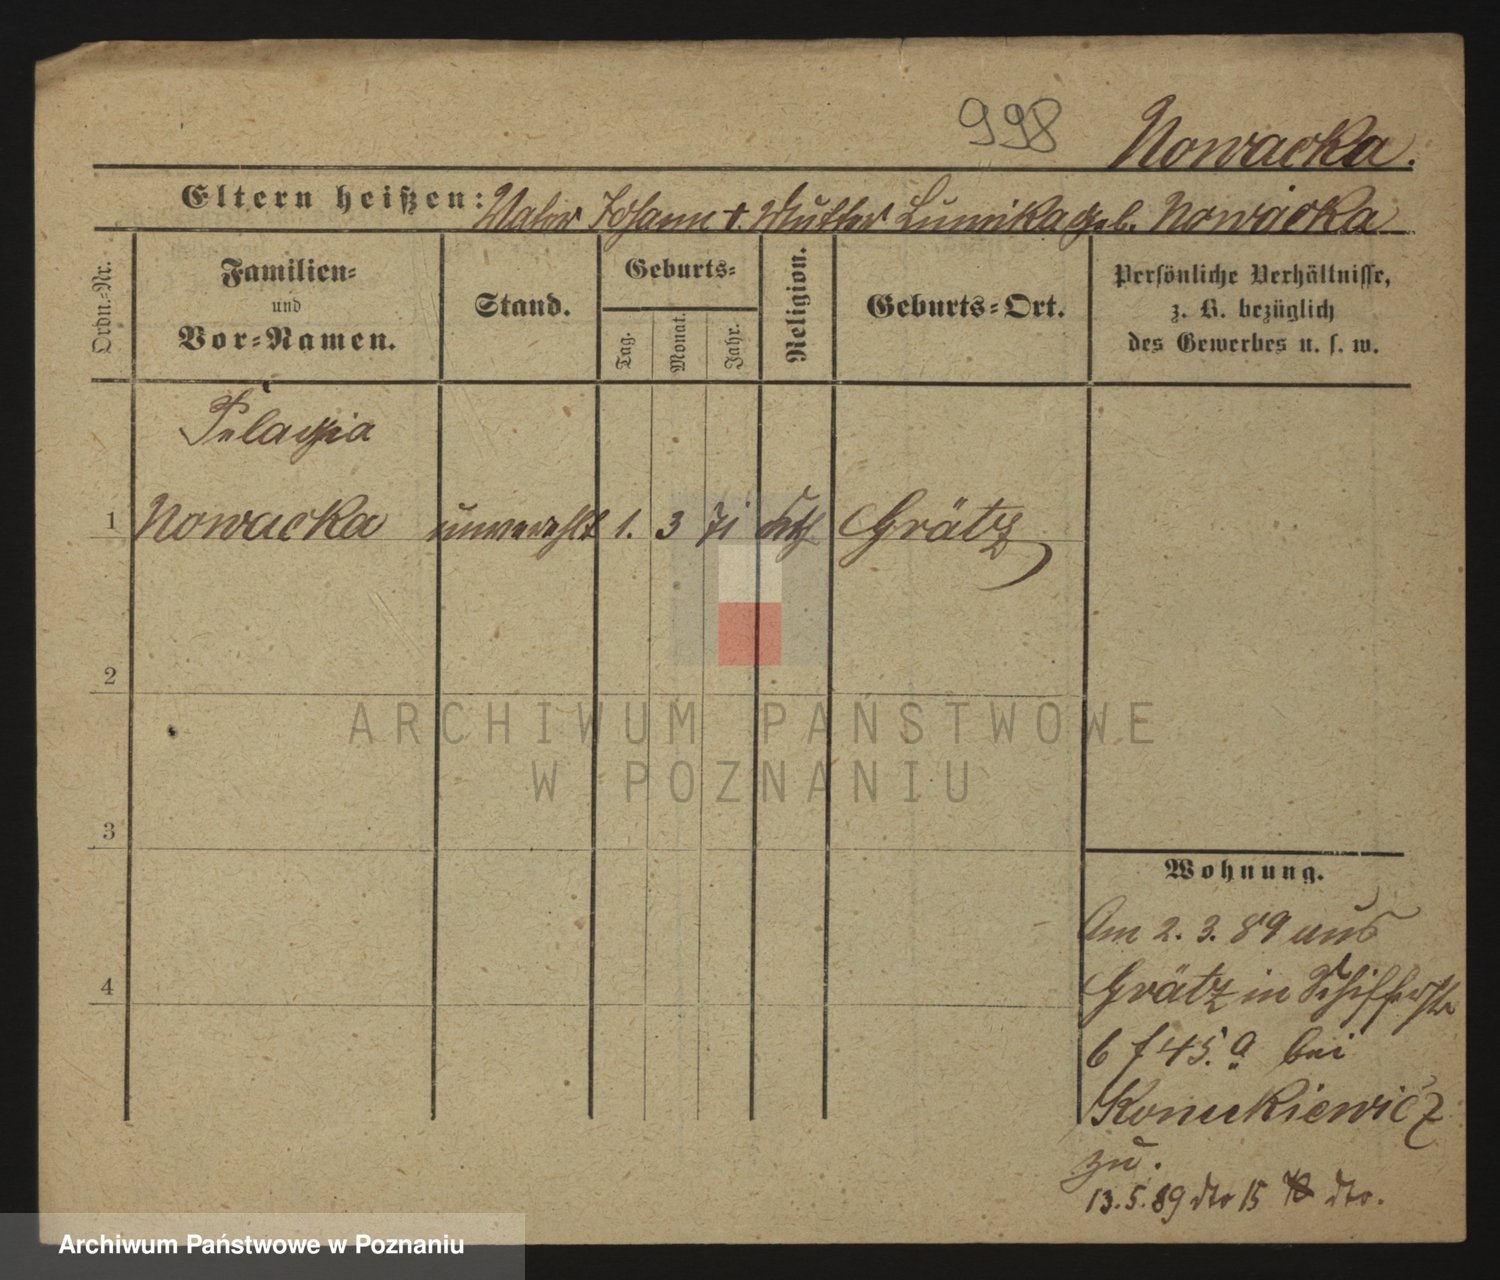 998
Nowacka.
Eltern heißen: Vater Johann †. Mutter geb. Nowacka
Ordn.-Nr.
Familien-
und
Vor-Namen.
Stand.
Geburts-
Tag.
Monat.
Jahr.
Religion.
Geburts-Ort.
Persönliche Verhältnisse,
z. B. bezüglich
des Gewerbes u. s. w.
Pelagia
1 Nowacka unverehlt 1. 3 71 kth Grätz
2
3
4
ARCHIWUM PAŃSTWOWE
W POZNANIU
Wohnung.
Am 2. 3. 89 aus
Grätz in Schifferstr
6 f 45. a bei
zu.
13. 5. 89 dto 15 dto.
Archiwum Państwowe w Poznaniu